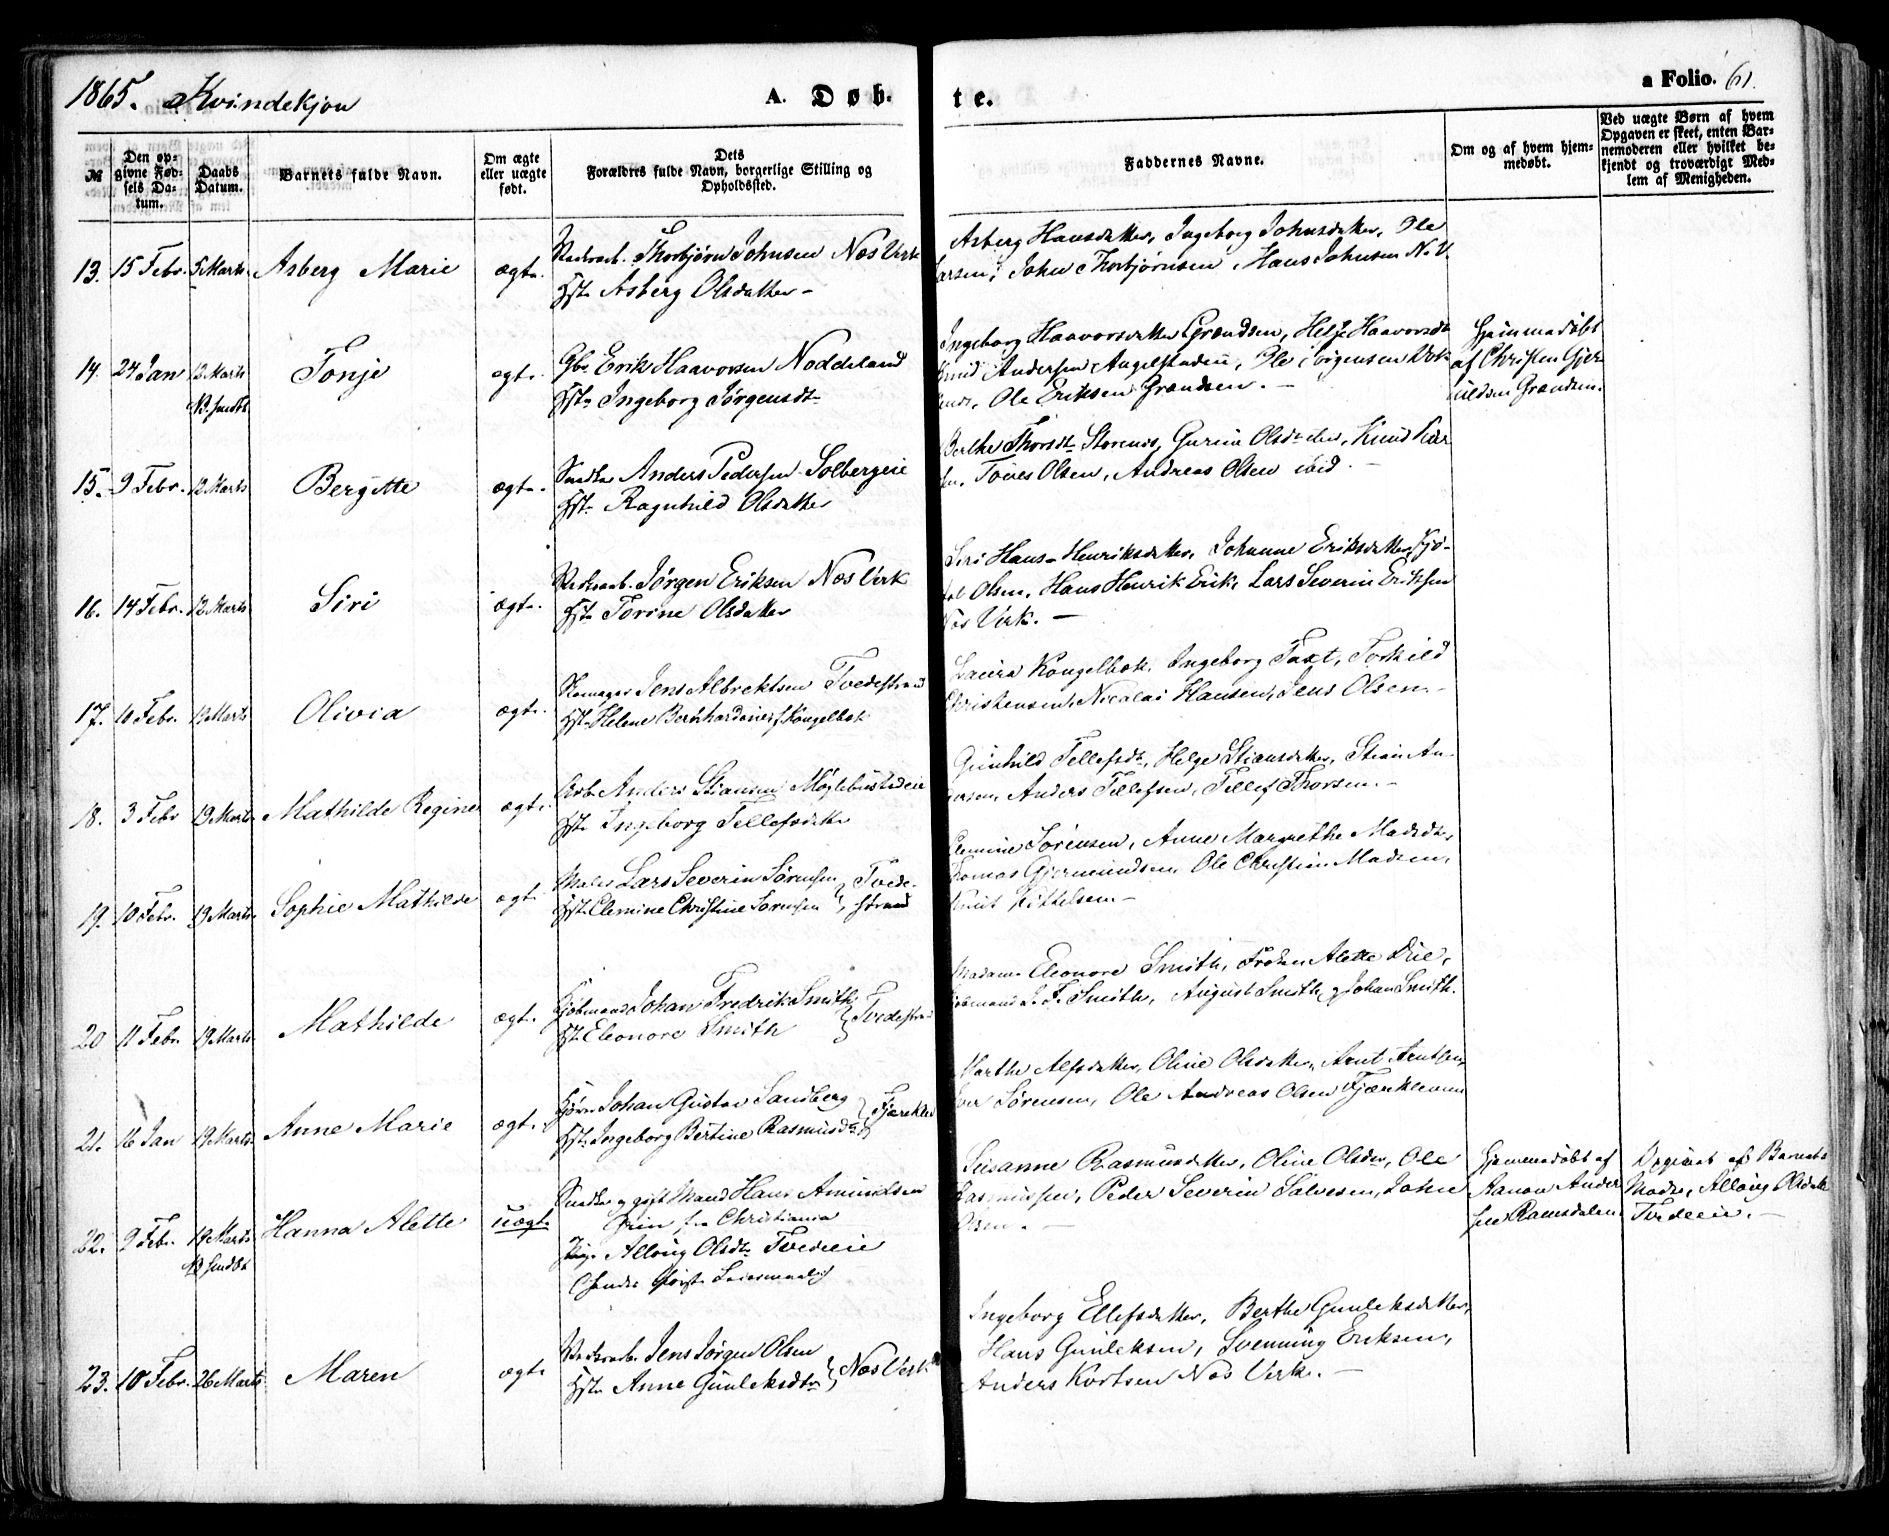 1865. Kvindekjøn
A. Døb-
te.
a Folio. 61.
№
Den op-
givne Fød-
sels Da-
tum.
Daabs
Datum.
Barnets fulde Navn.
Om ægte
eller uægte
født.
Dets
Forældres fulde Navn, borgerlige Stilling og
Opholdssted.
Faddernes Navne.
Om og af hvem hjem-
medøbt.
Ved uægte Børn af hvem
Opgaven er skeet, enten Bar-
nemoderen eller hvilket be-
kjendt og troværdigt Med-
lem af Menigheden.
13. 15 Febr. 5 Marts Asberg Marie ægte.
Thorbjørn Johnsen Næs Værk
Hst. Asberg Olsdatter
Asberg Hansdatter, Ingeborg Johnsdatter, Ole
Larsen, John Thorbjørnsen, Hans Johnsen N. V.
14. 24 Jan 12 Marts Tonje ægte.
Gbr. Erik Haavorsen Noddeland
Hst. Ingeborg Jørgensdt.
Ingeborg Haavorsdatter Grændsen, Helje Haavorsdt.
Knud Andersen Angelstaden, Ole Jørgensen
Ole Eriksen Grændsen. –
Hjemmedøbt
af Christen Gjer
uldsen Grændsen.
15. 9 Febr. 12 Marts Bergitte ægte.
Anders Pedersen Solbergeie
Hst. Ragnhild Olsdatter
Berthe Thorsdt. Storenes, Gurine Olsdatter, Knud
Tønes Olsen, Andreas Olsen ibid. –
16. 14 Febr. 12 Marts Siri ægte.
Jørgen Eriksen Næs Værk
Hst. Torine Olsdatter
Siri Hans-Henriksdatter, Johanne Eriksdatter,
Olsen, Hans Henrik Erik, Lars Severin Eriksen
Næs Værk. –
17. 10 Febr. 19 Marts Olivia ægte.
Skomager Jens Albrektsen Tvedestrand
Hst. Helene Bernhardine f. Kongelbæk
Laura Kongelbæk, Ingeborg Taxt, Torkild
Christensen, Nicolai Hansen, Jens Olsen. –
18. 3 Febr 19 Marts Mathilde Regine ægte.
Arb. Anders Stiansen Møglebustadeie
Hst. Ingeborg Tellefsdatter
Gunhild Tellefsdt., Helge Stiansdatter, Stian An-
dersen, Anders Tellefsen, Tellef Thorsen. –
19. 10 Febr. 19 Marts Sophie Mathilde ægt.
Maler Lars Severin Sørensen } Tvede-
Hst. Clemine Christine Sørensen } strand
Clemine Sørensen, Anne Margrethe Madsdt.,
Thomas Gjermundsen, Ole Christian Madsen,
Knut Kittelsen –
20 11 Febr. 19 Marts Mathilde ægt.
Kjøbmand Johan Fredrik Smith }
Hst. Eleonore Smith } Tvedestrand
Madam Eleonore Smith, Frøken Alette Due,
Kjøbmand J. F. Smith, August Smith og Johan Smith.
21. 16 Jan 19 Marts Anne Marie ægt.
Johan Gustav Sandberg }
Hst. Ingeborg Bertine Rasmusdt. }
Marthe Alfsdatter, Oline Olsdatter, Arnt Arntsen,
Sørensen, Ole Andreas Olsen
22. 9 Febr. 19 Marts Hanna Alette uægte
gift Mand Hans Amundsen
fra Christiania
Pige Alloug Olsdt. Tvedeeie
Susanne Rasmusdatter, Oline Olsdtr, Ole
Rasmussen, Peder Severin Salvesen, John
Olsen. –
Hjemmedøbt af
Aanon Ander
sen Ramsdalen.
Opgivet af Barnets
Moder, Alloug Olsdatter
Tvedeeie. –
23. 10 Febr. 26 Marts Maren ægte
Jens Jørgen Olsen }
Hst. Anne Gunleksdtr. } Næs Værk
Ingeborg Ellefsdatter, Berthe Gunleksdatter,
Hans Gunleksen, Svenning Eriksen,
Anders Kortsen Næs Værk. –